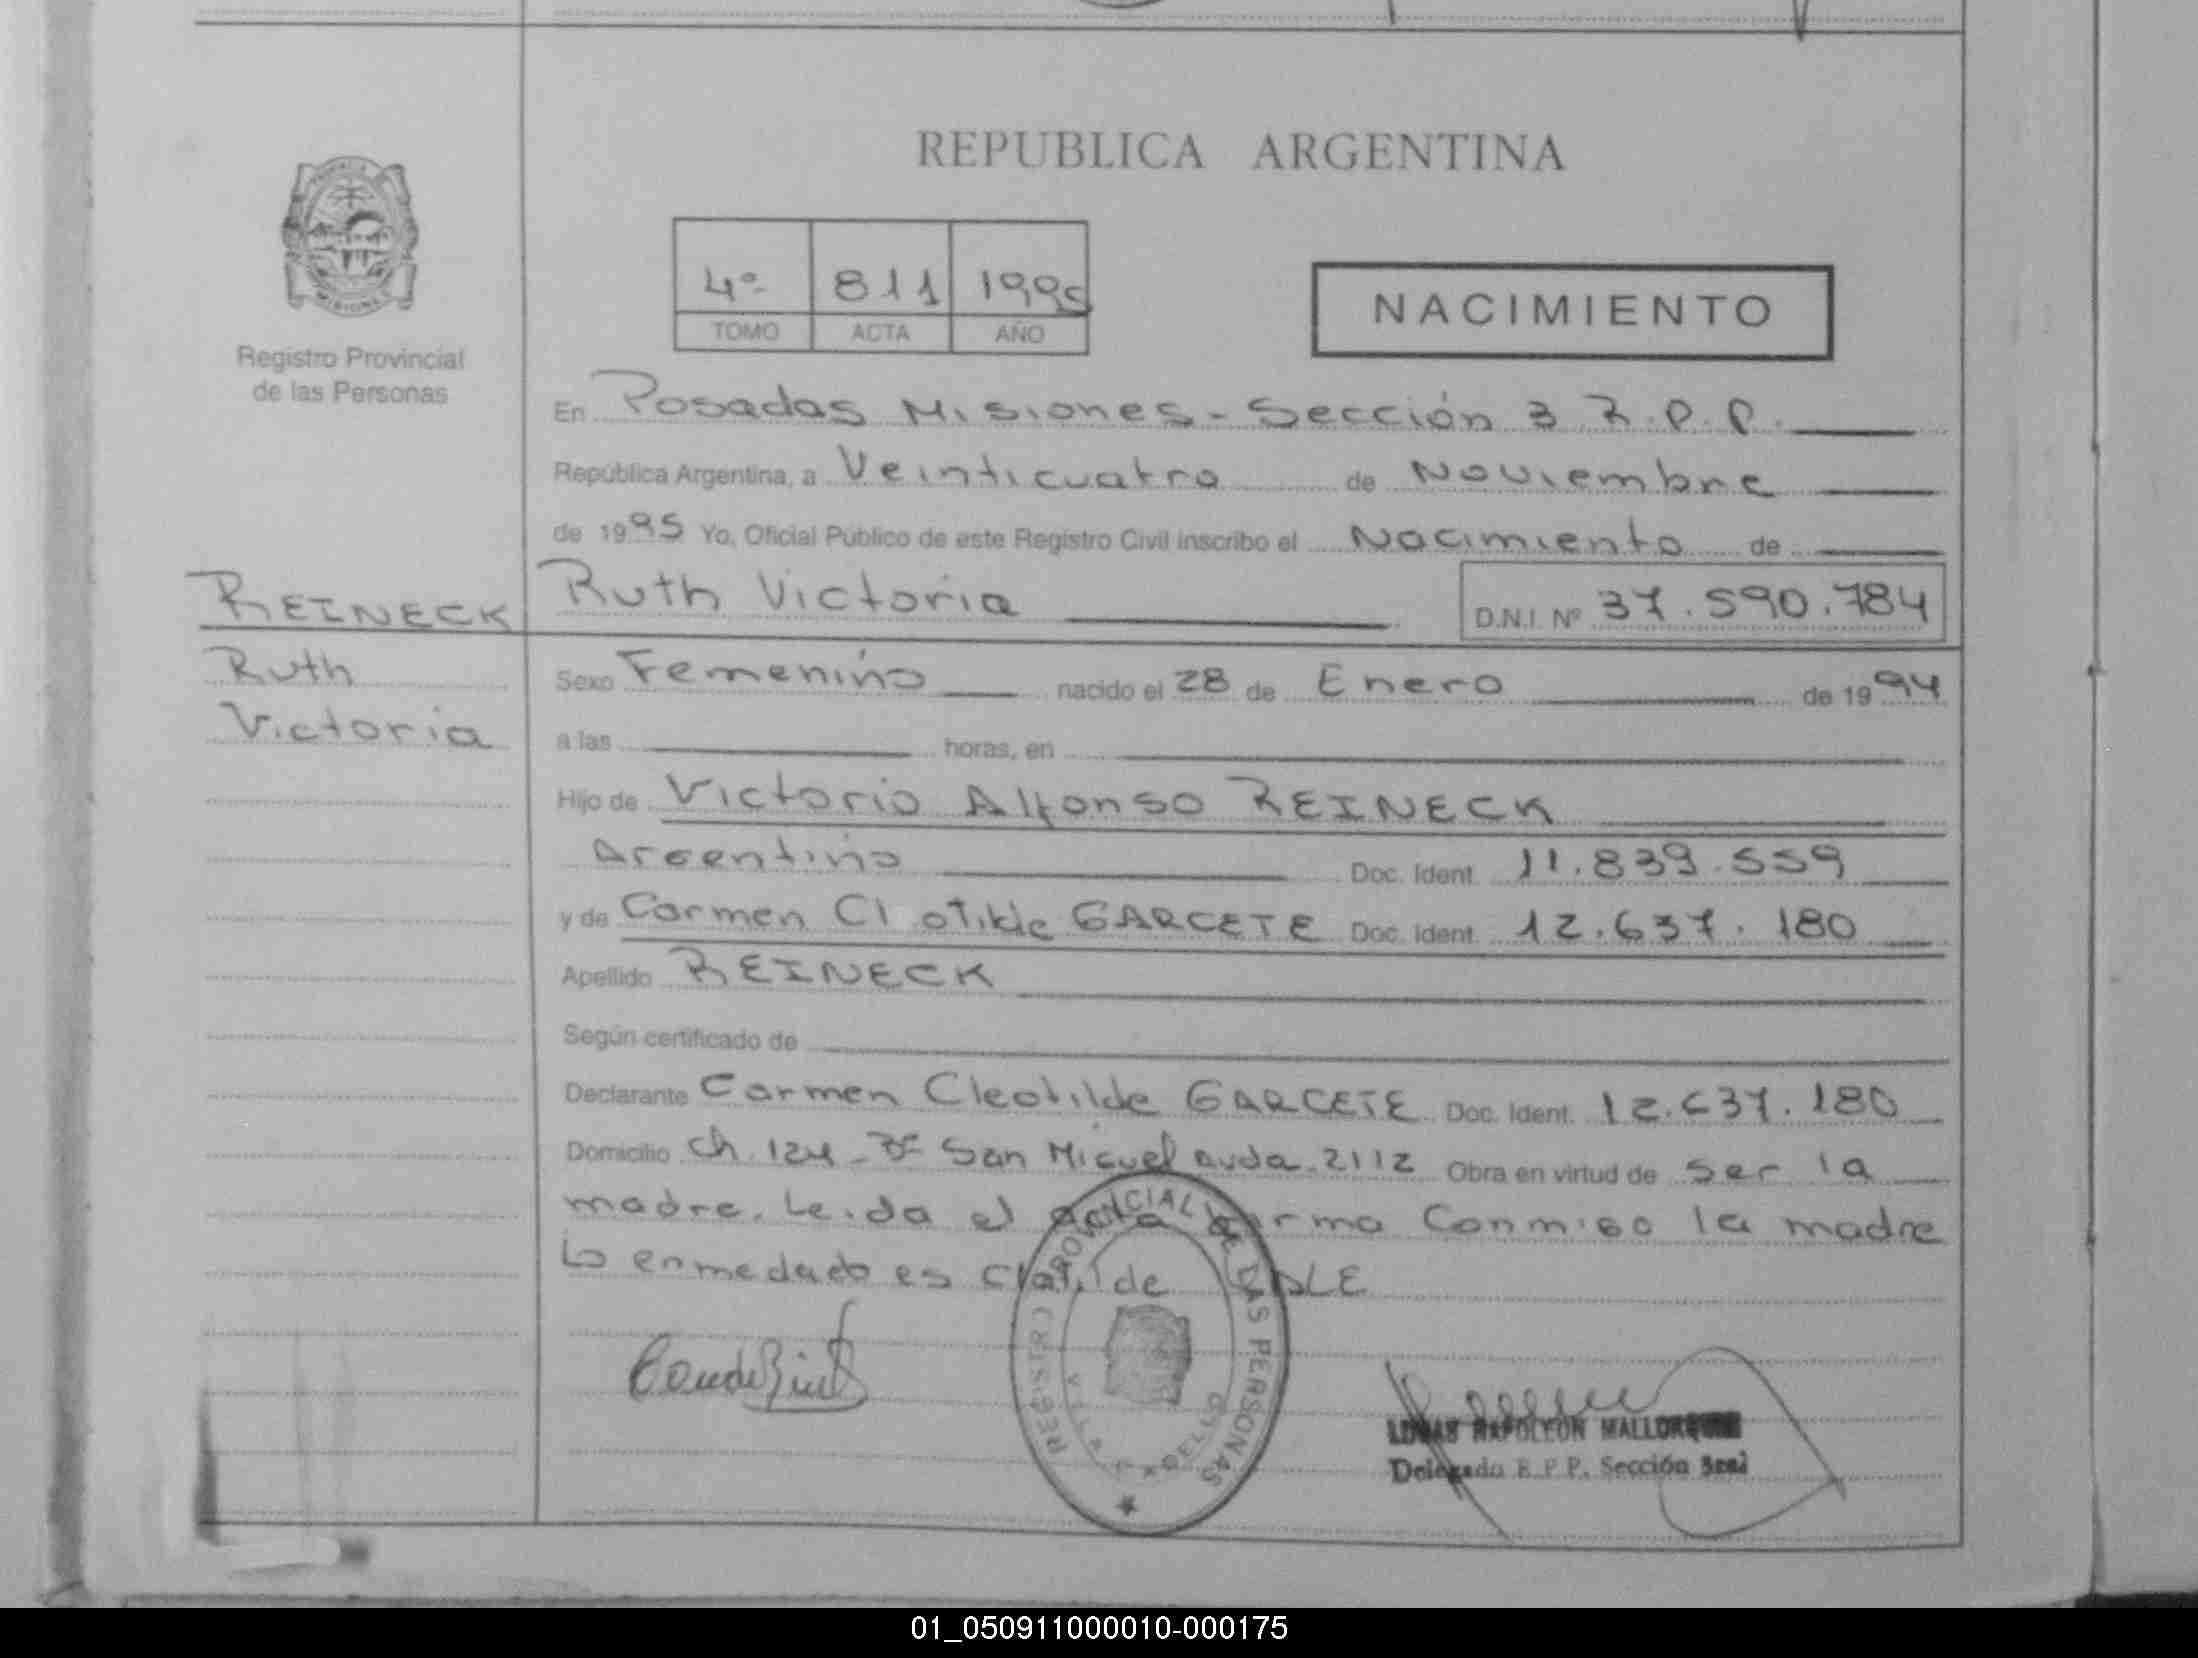 REPUBLICA ARGENTINA
4º 811 1995
TOMO ACTA AÑO
NACIMIENTO
Registro Provincial
de las Personas
MISIONES
En Posadas Misiones - Sección 3 R.P.P.
República Argentina, a Veinticuatro de Noviembre
de 1995 Yo, Oficial Público de este Registro Civil inscribo el Nacimiento de
REINECK Ruth Victoria D.N.I. Nº 37.590.784
Ruth
Victoria
Sexo Femenino nacido el 28 de Enero de 1994
a las horas, en
Hijo de Victorio Alfonso REINECK
Argentino Doc. Ident. 11.839.559
y de Carmen Clotilde GARCETE Doc. Ident. 12.637.180
Apellido REINECK
Según certificado de
Declarante Carmen Cleotilde GARCETE Doc. Ident. 12.637.180
Domicilio Ch. 124 - Bº San Miguel avda. 2112 Obra en virtud de ser la
madre. Leida el acta firma conmigo la madre
Lo enmedado es Clotilde VALE
REGISTRO PROVINCIAL DE LAS PERSONAS
VILLA CABELLO
LUCAS NAPOLEON MALLORQUIN
Delegado R.P.P. Sección 3ra
01_050911000010-000175